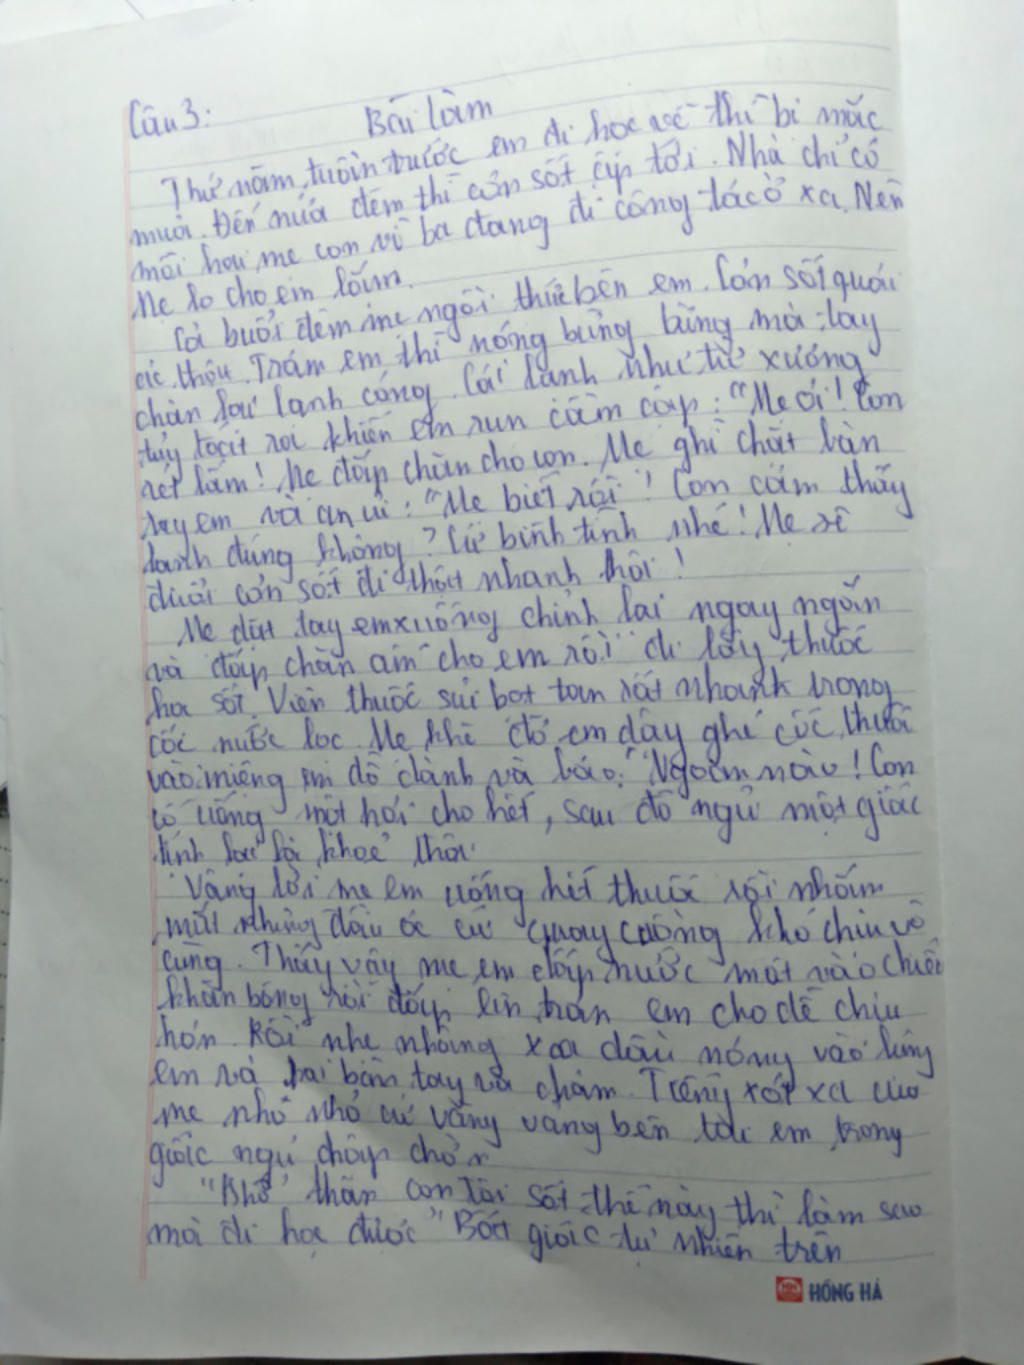 Câu 3:
Bài làm
Thứ năm, tuần trước em đi học về thì bị mắc
mưa. Đến nửa đêm thì cơn sốt ập tới. Nhà chỉ có
mỗi hai mẹ con vì ba đang đi công tác ở xa. Nên
Mẹ lo cho em lắm.
Cả buổi đêm mẹ ngồi thức bên em. Cơn sốt quái
ác thật. Trán em thì nóng bừng bừng mà tay
chân lại lạnh cóng. Cái lạnh như từ xương
tủy toát ra khiến em run cầm cập: "Mẹ ơi! Con
rét lắm! Mẹ đắp chăn cho con. Mẹ ghì chặt bàn
tay em và an ủi: "Mẹ biết rồi! Con cảm thấy
lạnh đúng không? Cứ bình tĩnh nhé! Mẹ sẽ
đuổi cơn sốt đi thật nhanh thôi!
Mẹ đặt tay em xuống chỉnh lại ngay ngắn
và đắp chăn ấm cho em rồi đi lấy thuốc
hạ sốt. Viên thuốc sủi bọt tan rất nhanh trong
cốc nước lọc. Mẹ khẽ đỡ em dậy ghé cốc thuốc
vào miệng em dỗ dành và bảo: "Ngoan nào! Con
cố uống một hơi cho hết, sau đó ngủ một giấc
tỉnh lại là khỏe thôi.
Vâng lời mẹ em uống hết thuốc rồi nhắm
mắt nhưng đầu óc cứ quay cuồng khó chịu vô
cùng. Thấy vậy mẹ em đắp nước mát vào chiếc
khăn bông rồi đắp lên trán em cho dễ chịu
hơn. Rồi nhẹ nhàng xoa dầu nóng vào lưng
em và hai bàn tay và chân. Tiếng xót xa của
mẹ nho nhỏ cứ văng vẳng bên tai em trong
giấc ngủ chập chờn
"Khổ thân con tôi sốt thế này thì làm sao
mà đi học được" Bất giác tự nhiên trên
HỒNG HÀ